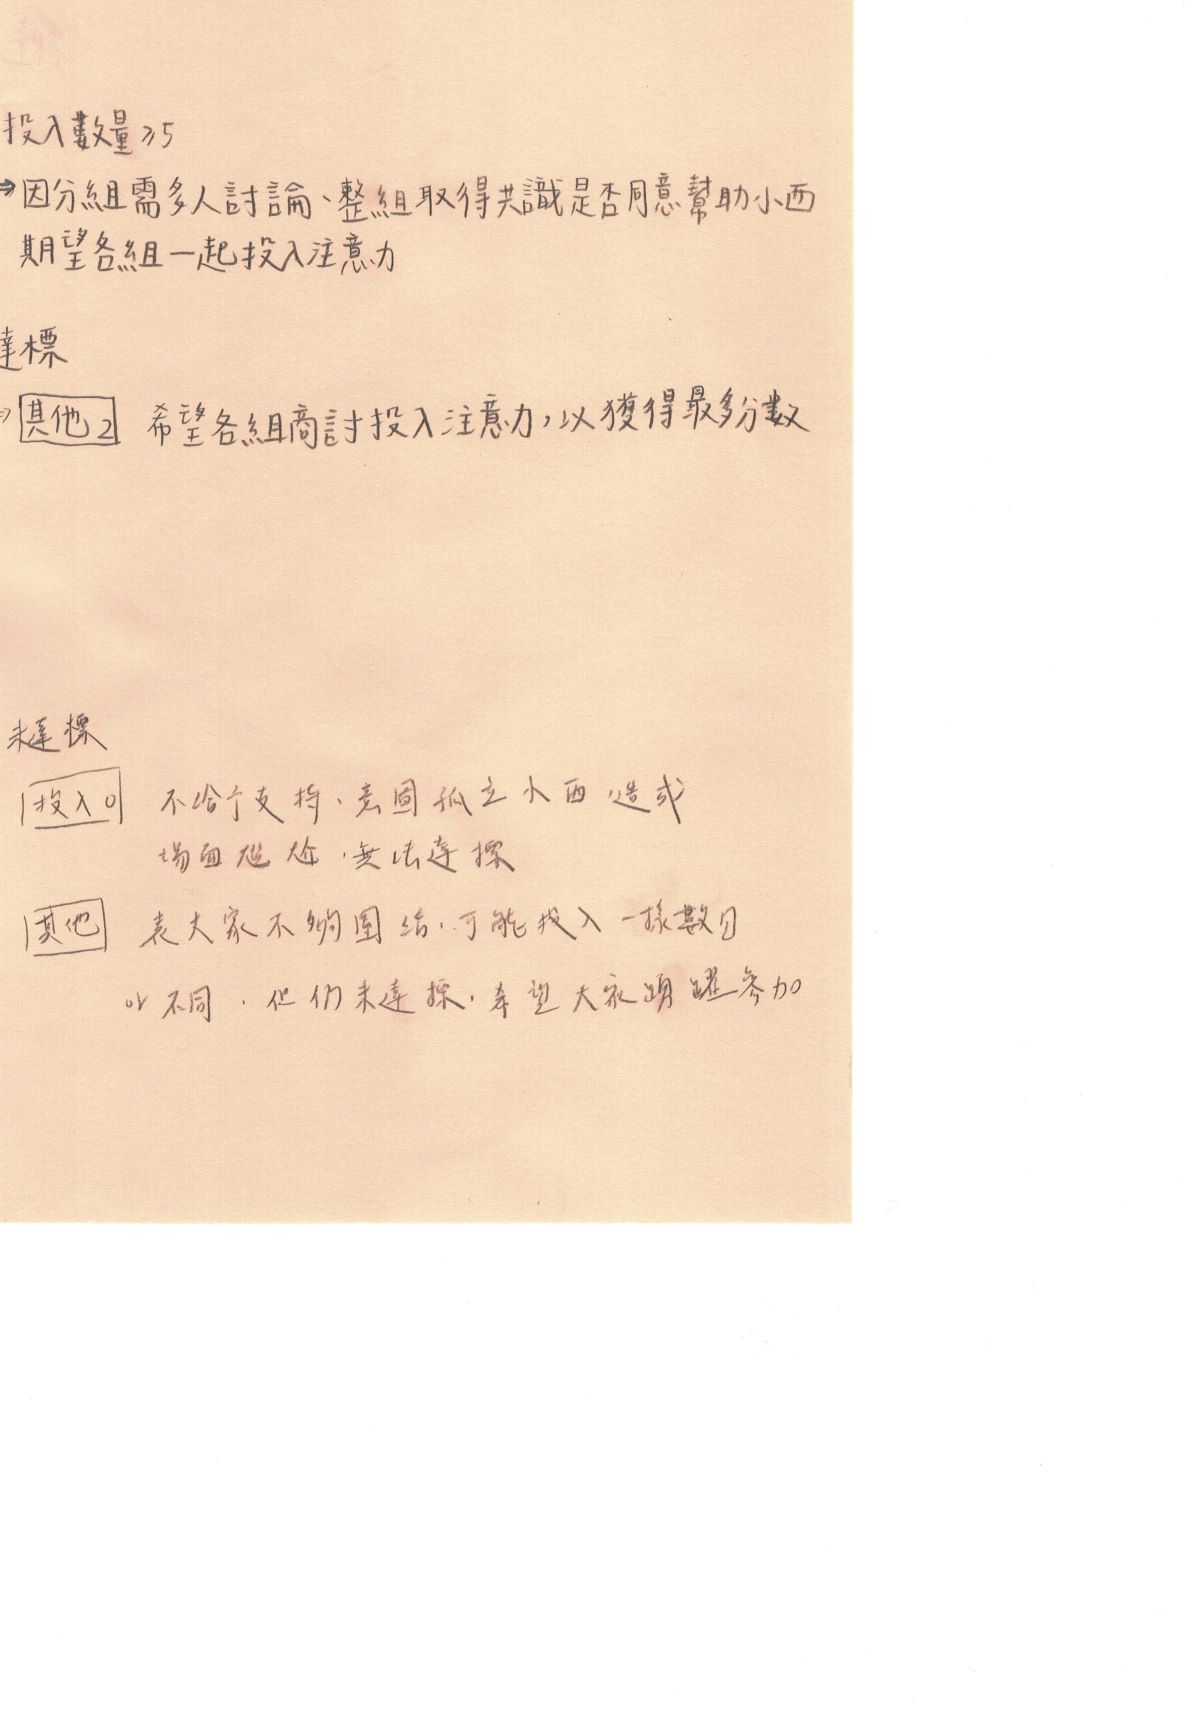 投入數量≥5
⇒因分組需多人討論、整組取得共識是否同意幫助小西
期望各組一起投入注意力
達標
⇒ 其他2 希望各組商討投入注意力,以獲得最多分數
未達標
投入0 不給予支持、意圖孤立小西,造成
場面尷尬,無法達標
其他 表大家不夠團結,可能投入一樣數目
or 不同,但仍未達標,希望大家踴躍參加